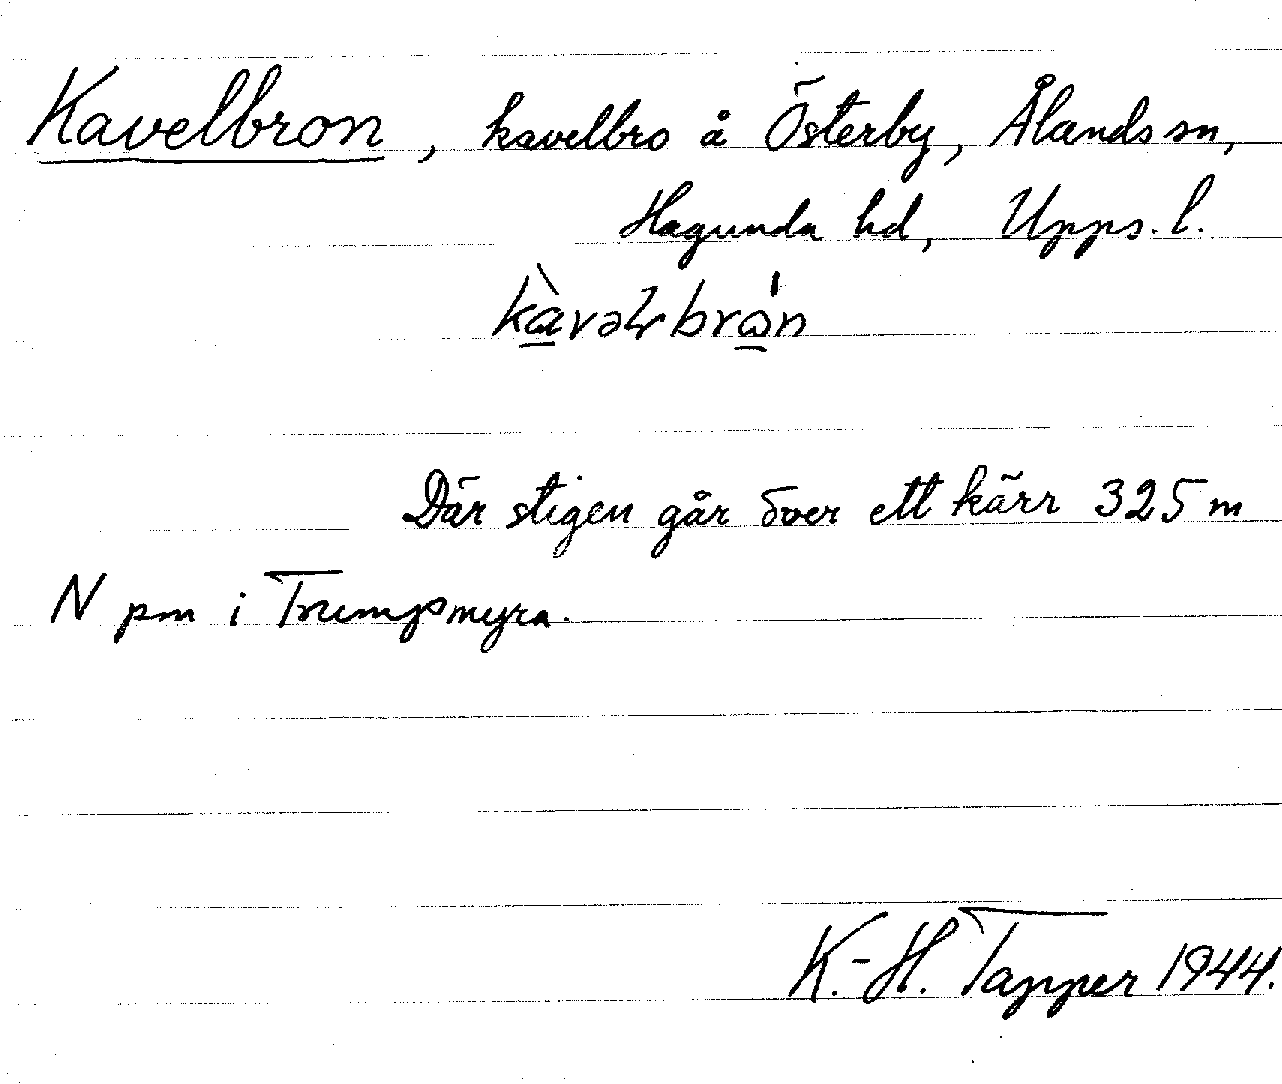 Kavelbron, kavelbro å Österby, Ålands sn,
Hagunda hd, Upps. l.
Där stigen går över ett kärr 325 m
N pm i Trumpsmyra.
K.-H. Tapper 1944.